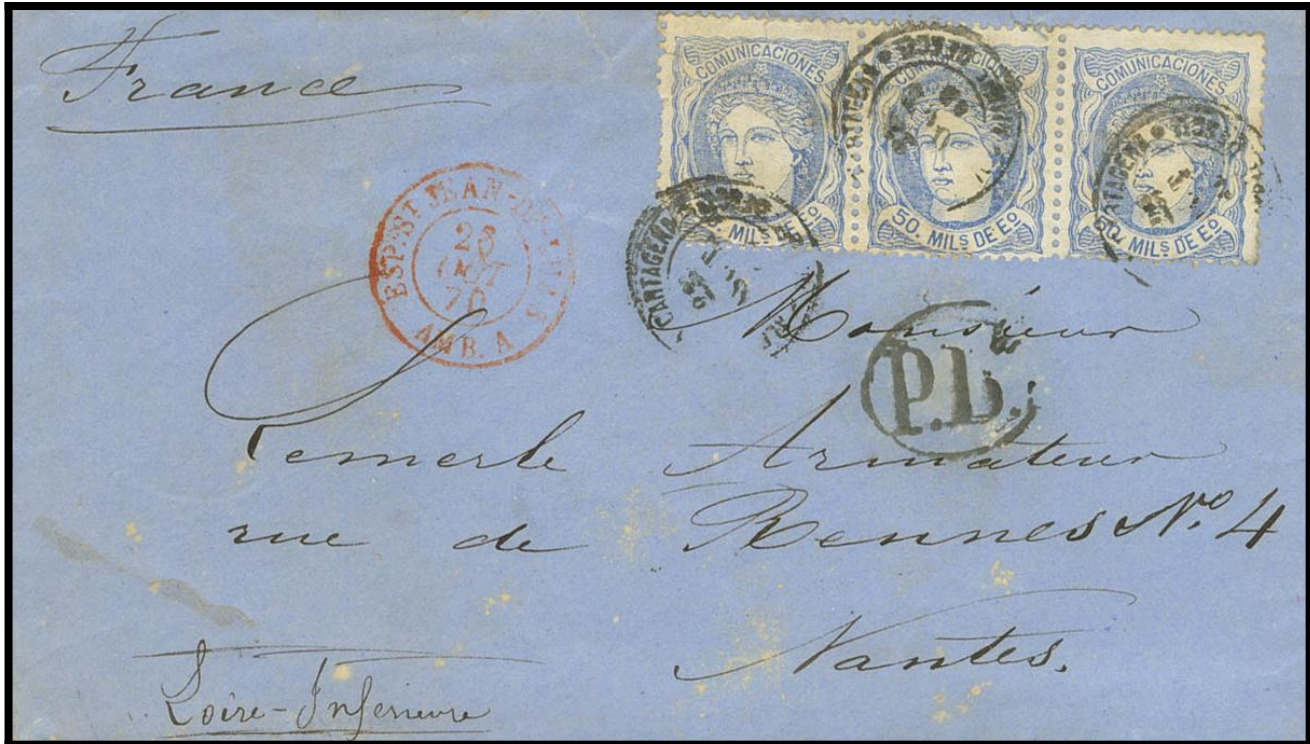 France
COMUNICACIONES
MILS DE Eº
COMUNICACIONES
50. MILS DE Eº
COMUNICACIONES
50. MILS DE Eº
CARTAGENA
ESP. ST JEAN-DE-LUZ
OCT
70
AMB. A
Monsieur
P.D.
Armateur
rue de Rennes Nº 4
Nantes.
Loire-Inferieure